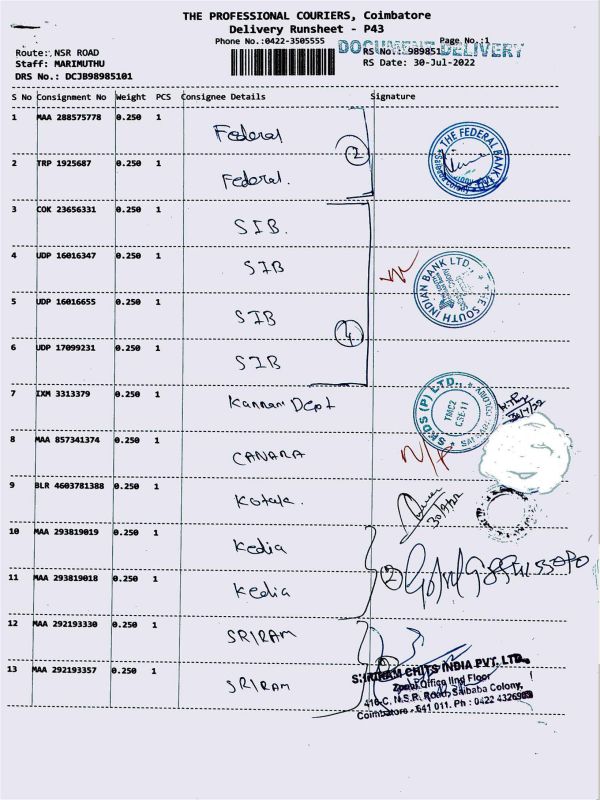 THE PROFESSIONAL COURIERS, Coimbatore
Delivery Runsheet - P43
Phone No.:0422-3505555
Page No.:1
DOCUMENT DELIVERY
Route: NSR ROAD
RS No.: 989851
Staff: MARIMUTHU
RS Date: 30-Jul-2022
DRS No.: DCJB98985101
S No Consignment No Weight PCS Consignee Details Signature
1 MAA 288575778 0.250 1 Federal
THE FEDERAL BANK
2 TRP 1925687 0.250 1 Federal.
2
3 COK 23656331 0.250 1 SIB.
4 UDP 16016347 0.250 1 SIB
THE SOUTH INDIAN BANK LTD.,
5 UDP 16016655 0.250 1 SIB
4
6 UDP 17099231 0.250 1 SIB
7 IXM 3313379 0.250 1 Kannan Dept
SKDS (P) LTD.,
TMC2
CSE-11
8 MAA 857341374 0.250 1 CANARA
N/P
9 BLR 4603781388 0.250 1 Kotak.
10 MAA 293819019 0.250 1 Kedia
2
11 MAA 293819018 0.250 1 Kedia
12 MAA 292193330 0.250 1 SRIRAM
13 MAA 292193357 0.250 1 SRIRAM
SHRIRAM CHITS INDIA PVT. LTD.,
Zonal Office IInd Floor
416-C, N.S.R. Road, Saibaba Colony,
Coimbatore - 641 011. Ph : 0422 4326909